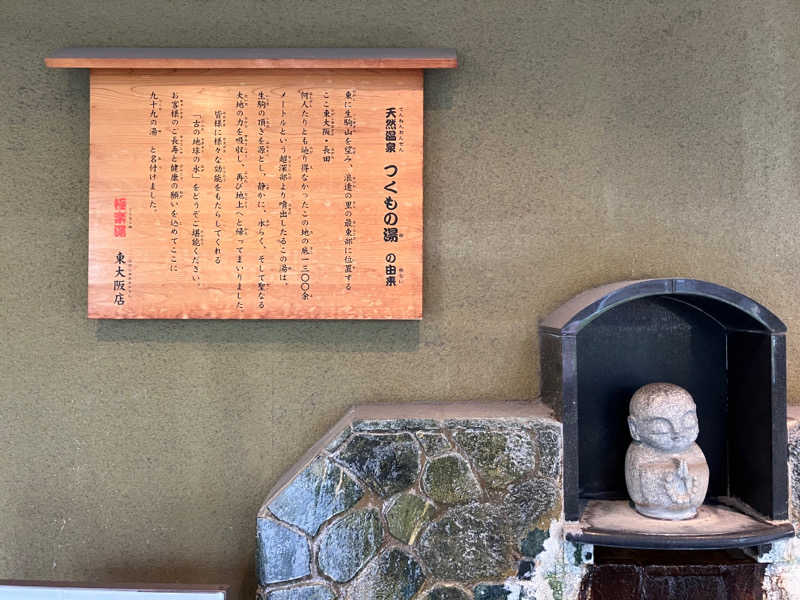 天然温泉 つくもの湯 の由来
東に生駒山を望み、浪速の里の最東部に位置する
ここ東大阪・長田
何人たりとも辿り得なかったこの地の底一三〇〇余
メートルという超深部より噴出したるこの湯は、
生駒の頂きを源とし、静かに、永らく、そして聖なる
大地の力を吸収し、再び地上へと帰ってまいりました
皆様に様々な効能をもたらしてくれる
「古の地球の水」をどうぞご堪能ください。
お客様のご長寿と健康の願いを込めてここに
九十九の湯 と名付けました。
極楽湯 東大阪店